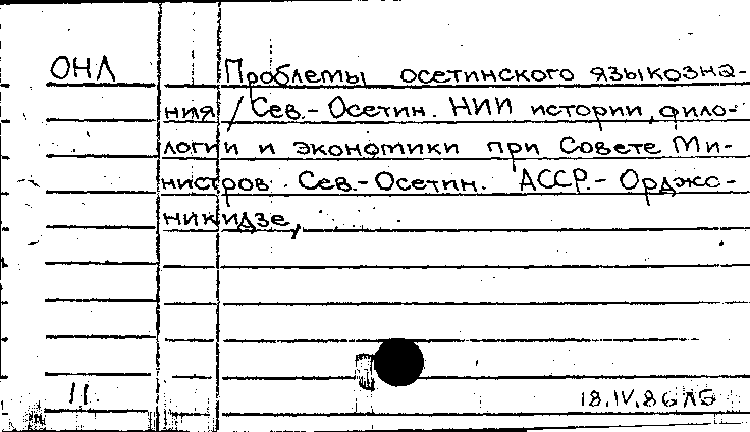 ОНЛ Проблемы осетинского языкозна-
ния / Сев.- Осетин. НИИ истории, фило-
логии и экономики при Совете Ми-
нистров Сев.-Осетин. АССР.- Орджо-
никидзе,
11 18.IV.86 ЛБ